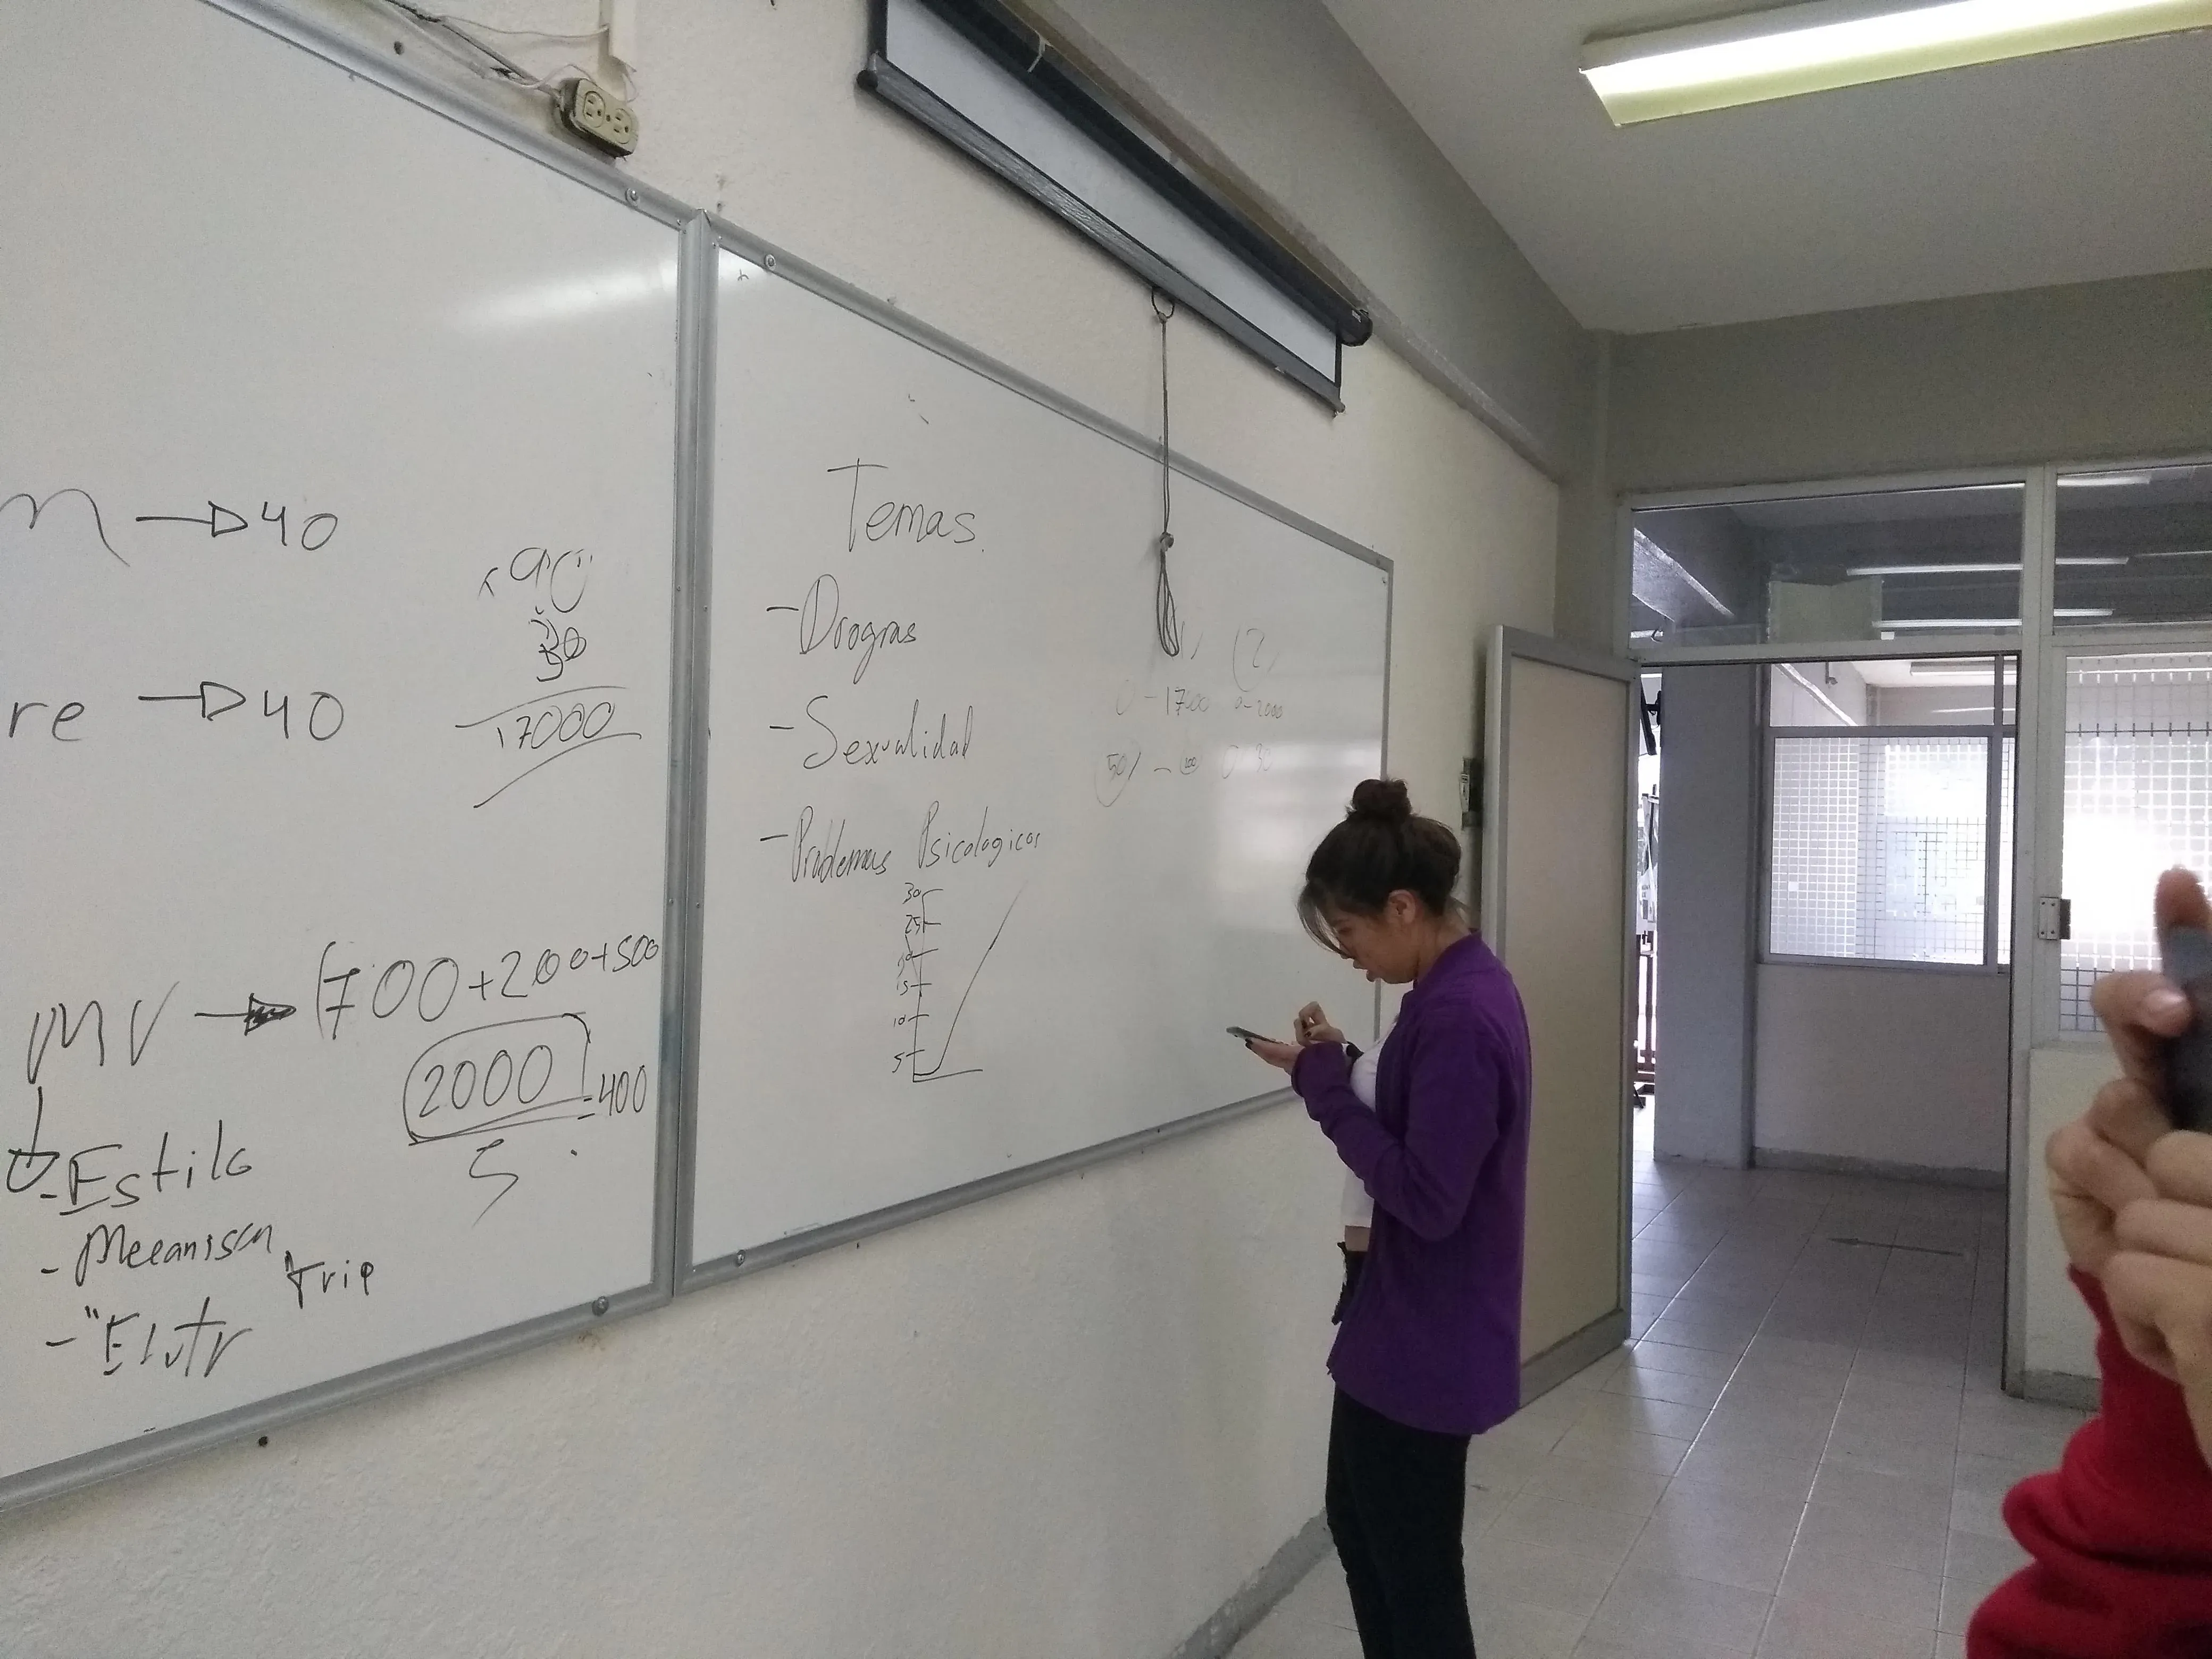 → 40
re → 40
17000
MV → 1700+200+500
2000 = 400
5
- Estilo
- Mecanism
Trip
Temas
- Drogas
- Sexualidad
- Problemas Psicologicos
30
25
15
10
5
0 - 1700 0 - 2000